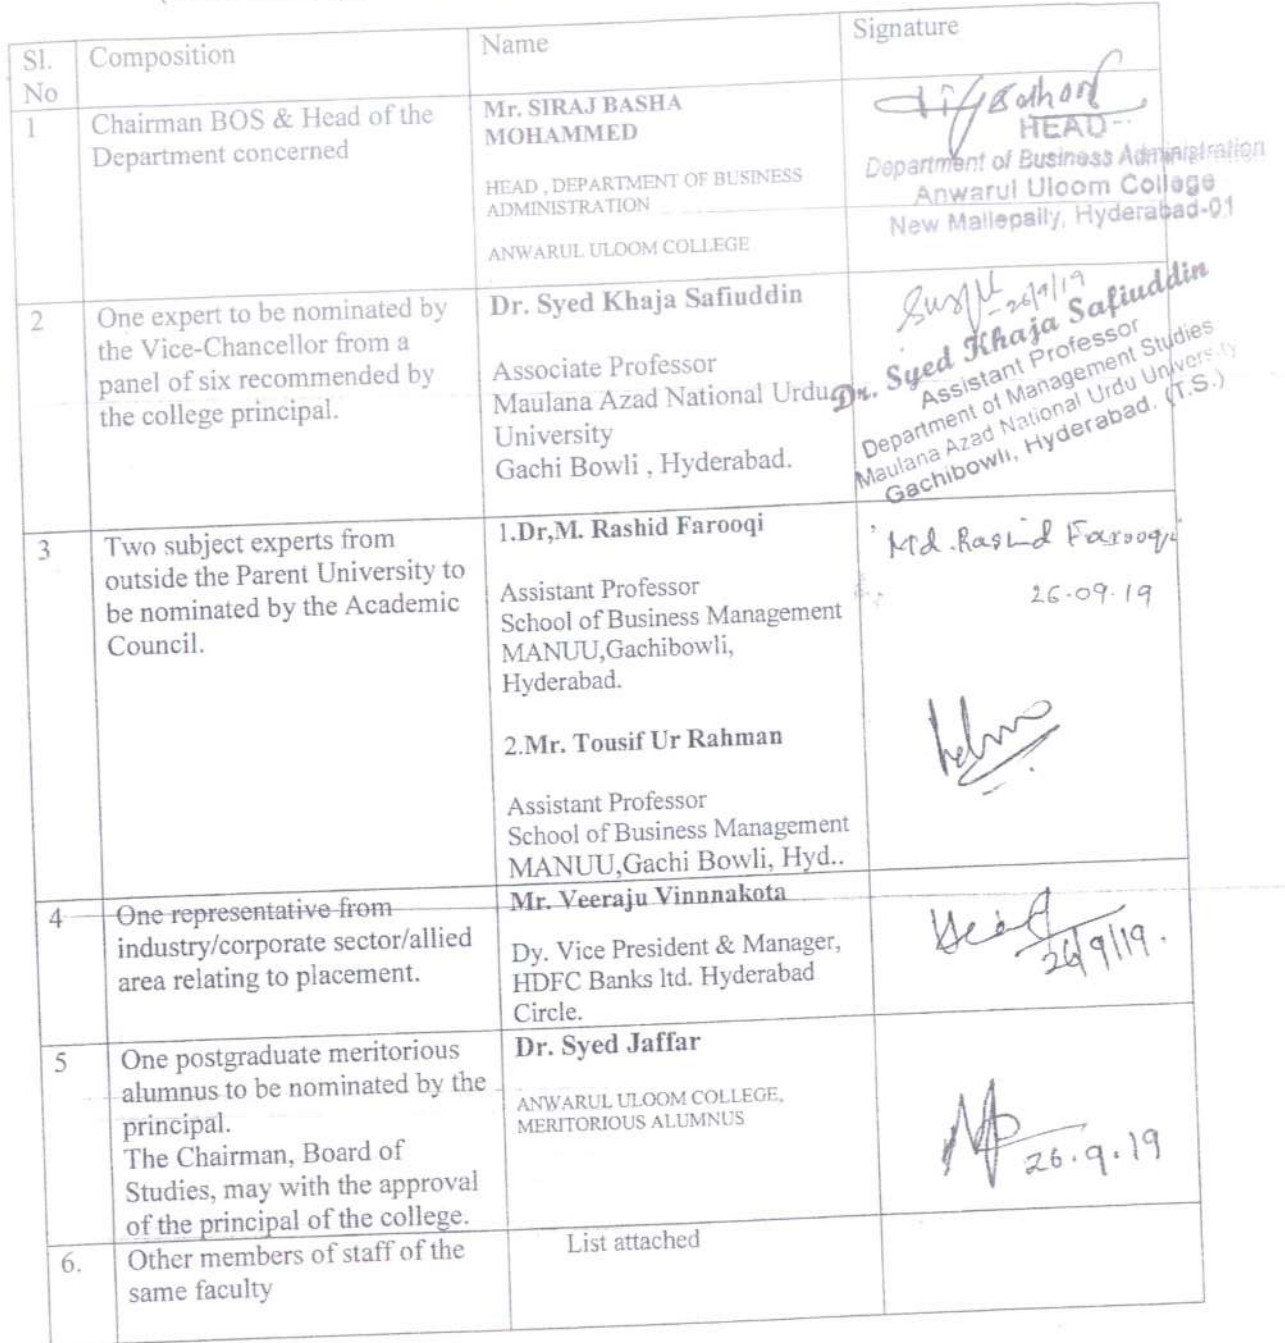 Sl.
No
Composition
Name
Signature
1
Chairman BOS & Head of the
Department concerned
Mr. SIRAJ BASHA
MOHAMMED
HEAD , DEPARTMENT OF BUSINESS
ADMINISTRATION
ANWARUL ULOOM COLLEGE
HEAD
Department of Business Administration
Anwarul Uloom College
New Mallepally, Hyderabad-01
2
One expert to be nominated by
the Vice-Chancellor from a
panel of six recommended by
the college principal.
Dr. Syed Khaja Safiuddin
Associate Professor
Maulana Azad National Urdu
University
Gachi Bowli , Hyderabad.
26/9/19
Dr. Syed Khaja Safiuddin
Assistant Professor
Department of Management Studies
Maulana Azad National Urdu University
Gachibowli, Hyderabad. (T.S.)
3
Two subject experts from
outside the Parent University to
be nominated by the Academic
Council.
1.Dr,M. Rashid Farooqi
Assistant Professor
School of Business Management
MANUU,Gachibowli,
Hyderabad.
Md. Rashid Farooqi
26.09.19
2.Mr. Tousif Ur Rahman
Assistant Professor
School of Business Management
MANUU,Gachi Bowli, Hyd..
4
One representative from
industry/corporate sector/allied
area relating to placement.
Mr. Veeraju Vinnnakota
Dy. Vice President & Manager,
HDFC Banks ltd. Hyderabad
Circle.
26/9/19.
5
One postgraduate meritorious
alumnus to be nominated by the
principal.
The Chairman, Board of
Studies, may with the approval
of the principal of the college.
Dr. Syed Jaffar
ANWARUL ULOOM COLLEGE,
MERITORIOUS ALUMNUS
26.9.19
6.
Other members of staff of the
same faculty
List attached